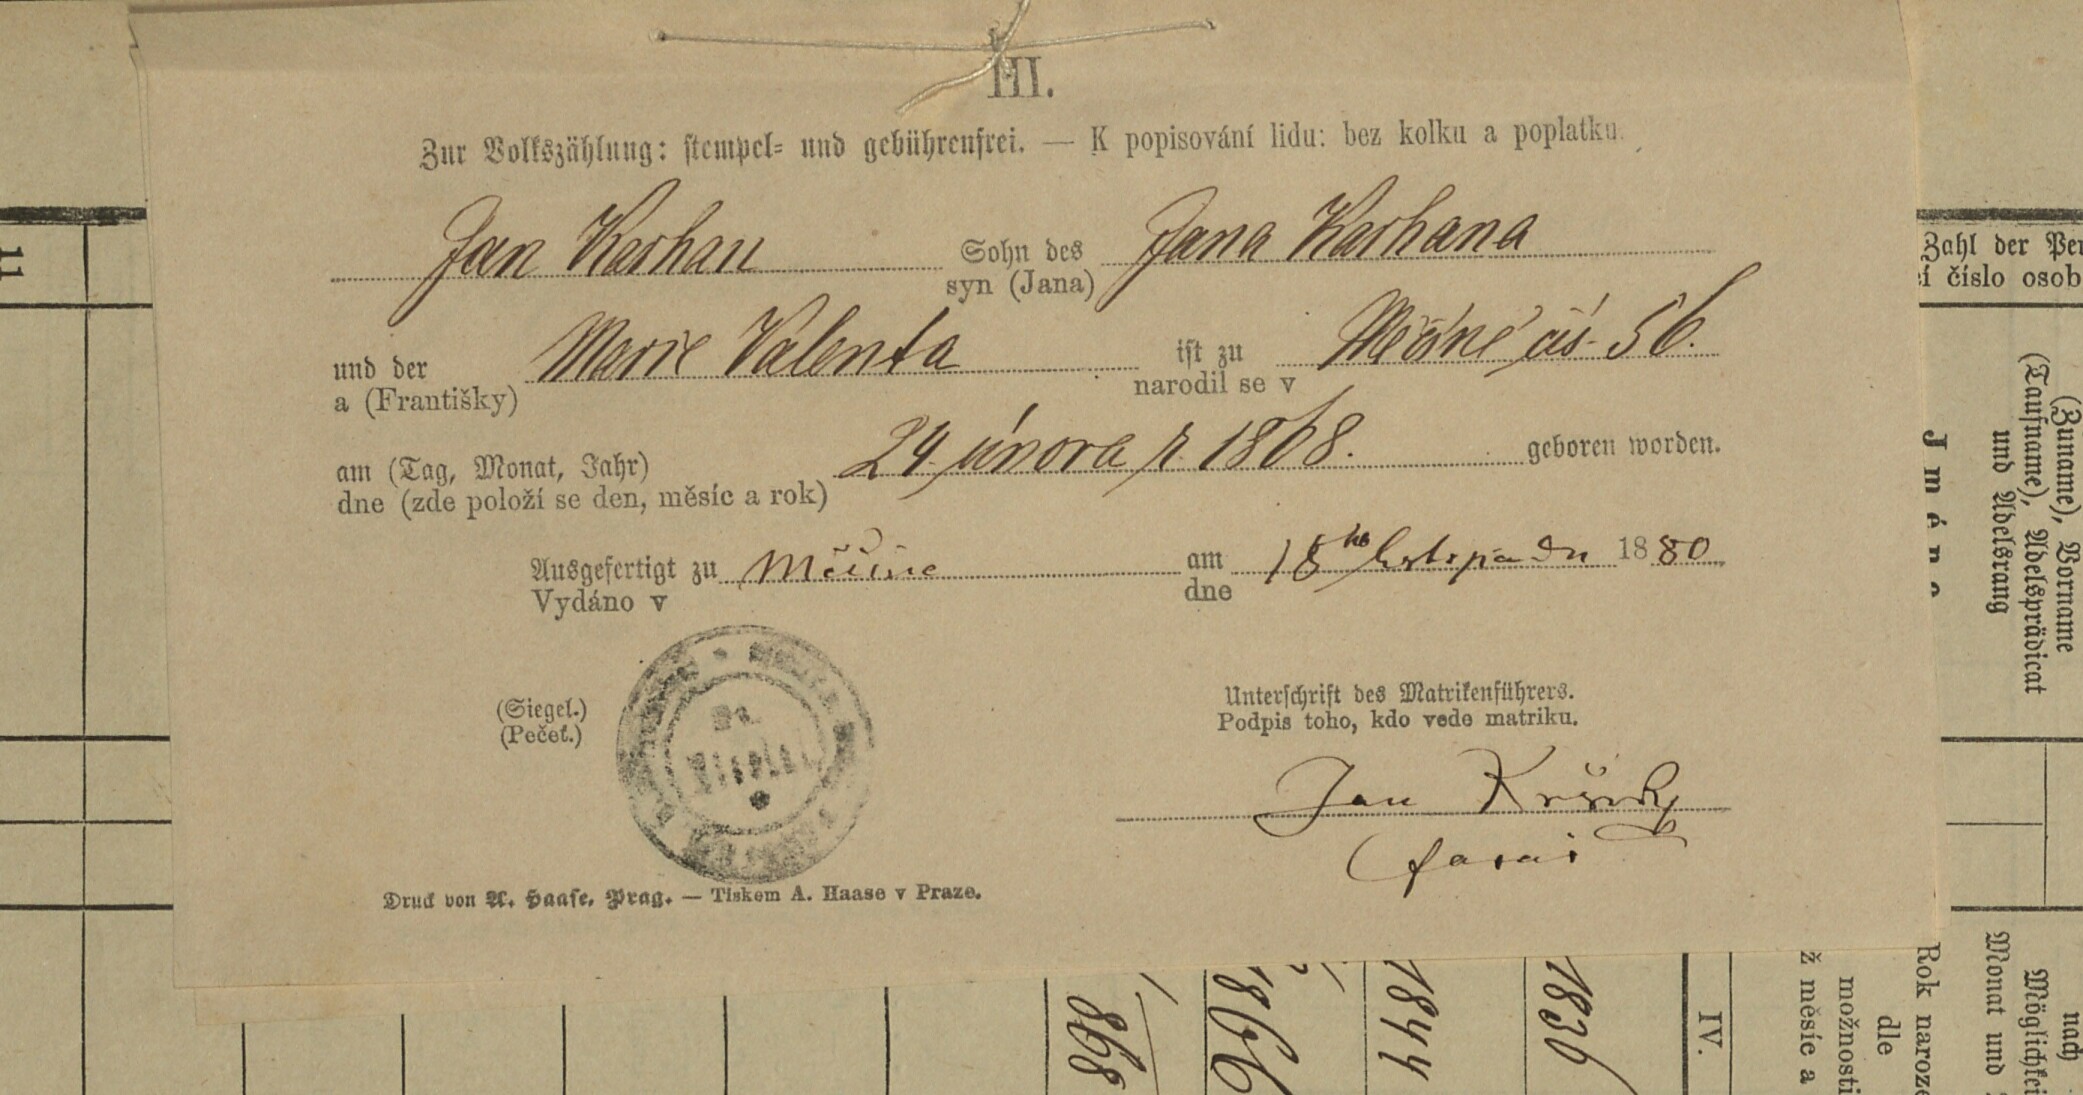 III.
Zur Volkszählung: stempel- und gebührenfrei. — K popisování lidu: bez kolku a poplatku.
Jan Karhan Sohn des Jana Karhana
syn (Jana)
und der Marie Valenta ist zu Měčíně čís. 56.
a (Františky) narodil se v
am (Tag, Monat, Jahr) 24. února r. 1868. geboren worden.
dne (zde položí se den, měsíc a rok)
Ausgefertigt zu Měčíně am 18ho listopadu 1880
Vydáno v dne
(Siegel.)
(Pečeť.)
Unterschrift des Matrikenführers.
Podpis toho, kdo vede matriku.
Jan
farář
Druck von A. Haase, Prag. — Tiskem A. Haase v Praze.
11
Zahl der Per
í číslo osob
(Zuname), Vorname
(Taufname), Adelsprädicat
und Adelsrang
Jméno
nach
Möglichkei
Monat und
Rok naroze
dle
možnosti
ž měsíc a
IV.
1836
1844
1866
868